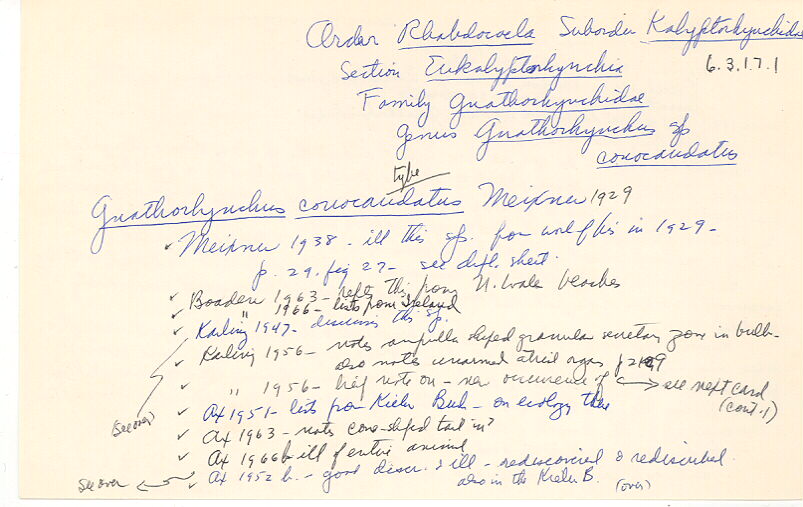 Order Rhabdocoela Suborder Kalyptorhynchidia
Section Eukalyptorhynchia 6.3.17.1
Family Gnathorhynchidae
Genus Gnathorhynchus sp
conocaudatus
type
Gnathorhynchus conocaudatus Meixner 1929
✓ Meixner 1938 - ill this sp. from work of his in 1929 -
p. 29. fig 27 - see dupl. sheet.
✓ Boaden 1963 - repts this from N. Wales beaches
✓ " 1966 - lists from Ireland
✓ Karling 1947 - discusses this sp.
✓ Karling 1956 - notes ampulla shaped granular secretary zone in bulb -
also notes unarmed atrial organ p 249
✓ " 1956 - brief note on - new occurrence of → see next card
(cont. 1)
✓ Ax 1951 - lists from Kieler Buch - on ecology there
see over
✓ Ax 1963 - notes cone-shaped tail in?
✓ Ax 1966b ill of entire animal
✓ Ax 1952 b. - good descr. & ill - rediscovered & redescribed
see over
also in the Kieler B. (over)